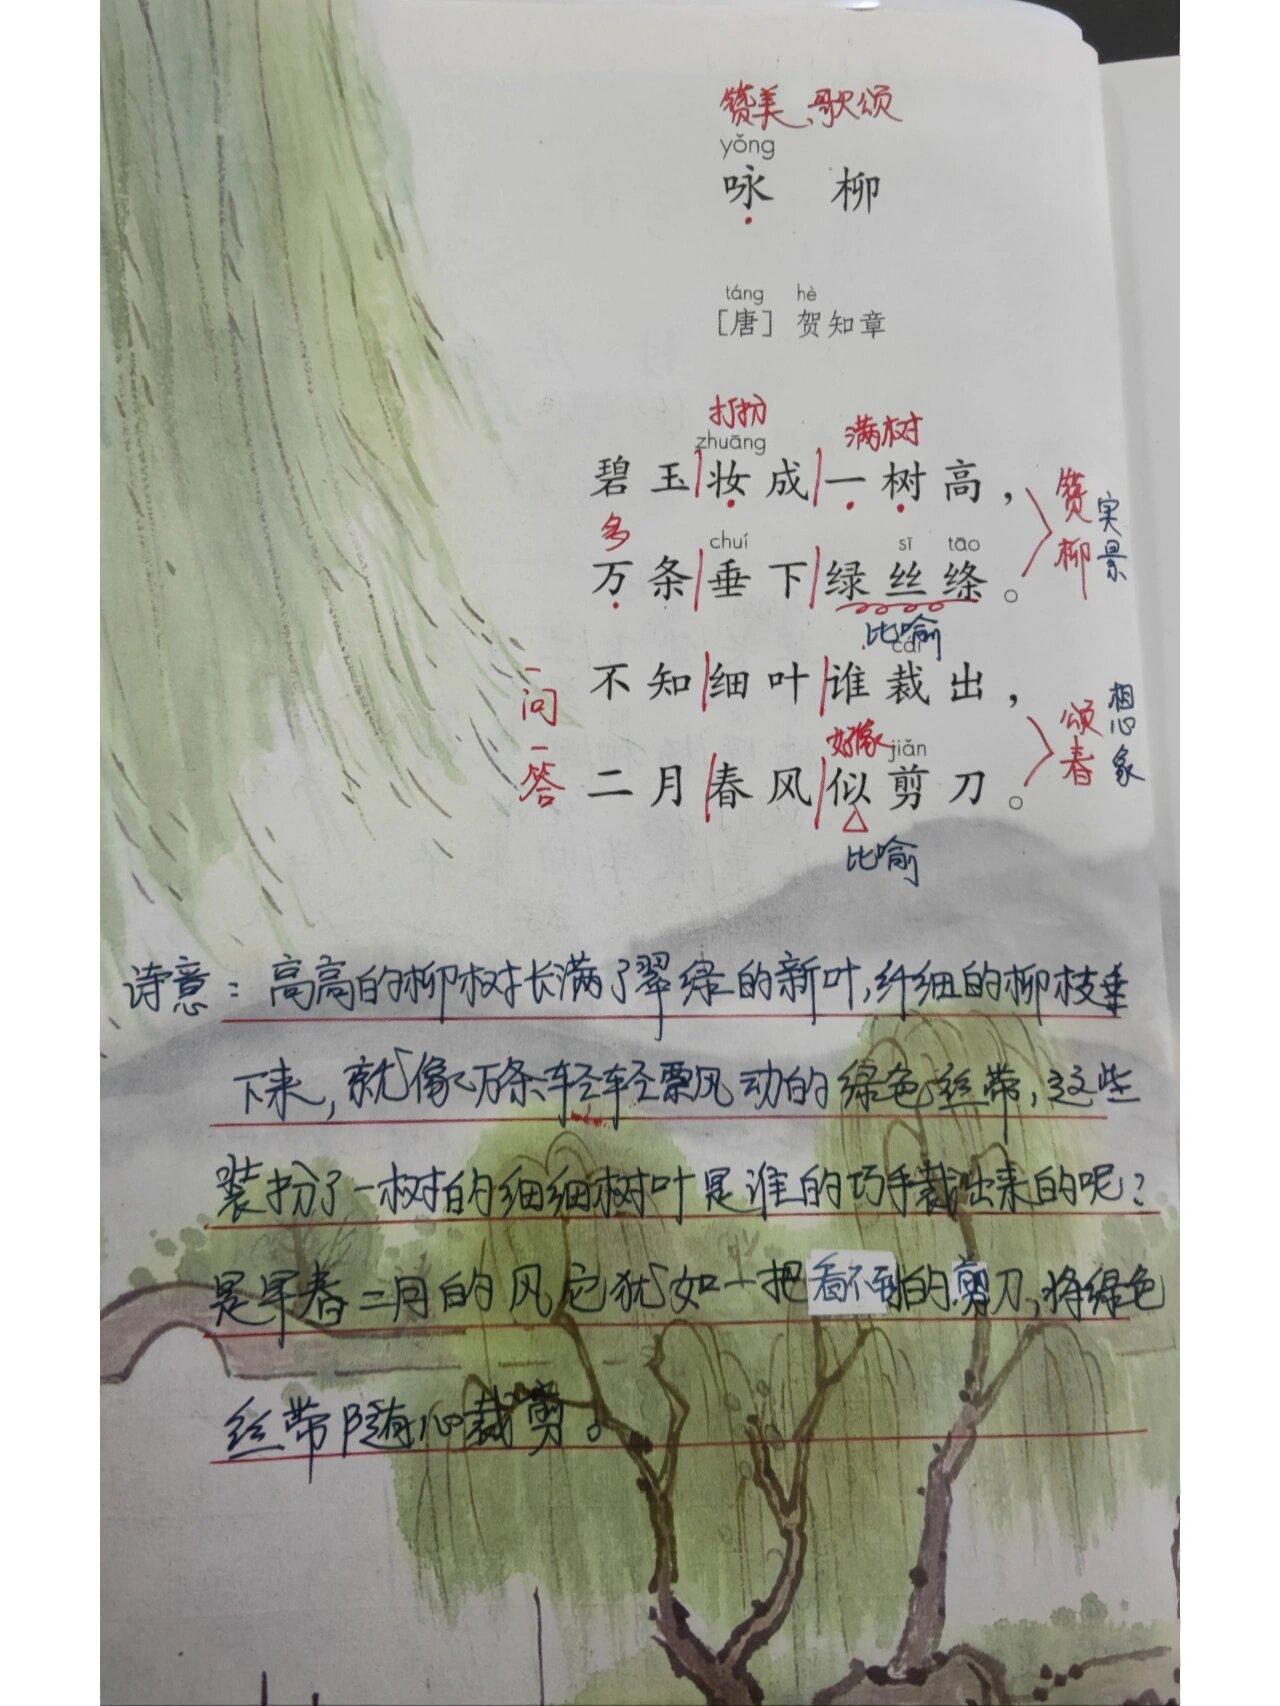 赞美、歌颂
yǒng
咏 柳
táng hè
[唐] 贺知章
打扮 满树
zhuāng
碧玉妆成一树高，
赞柳 实景
多 chuí sī tāo
万条垂下绿丝绦。
比喻
cái
一问 不知细叶谁裁出，
颂春 想象
好像 jiǎn
一答 二月春风似剪刀。
比喻
诗意：高高的柳树长满了翠绿的新叶，纤细的柳枝垂
下来，就像万条轻轻飘动的绿色丝带，这些
装扮了一树的细细树叶是谁的巧手裁出来的呢？
是早春二月的风它犹如一把看不到的剪刀，将绿色
丝带随心裁剪。